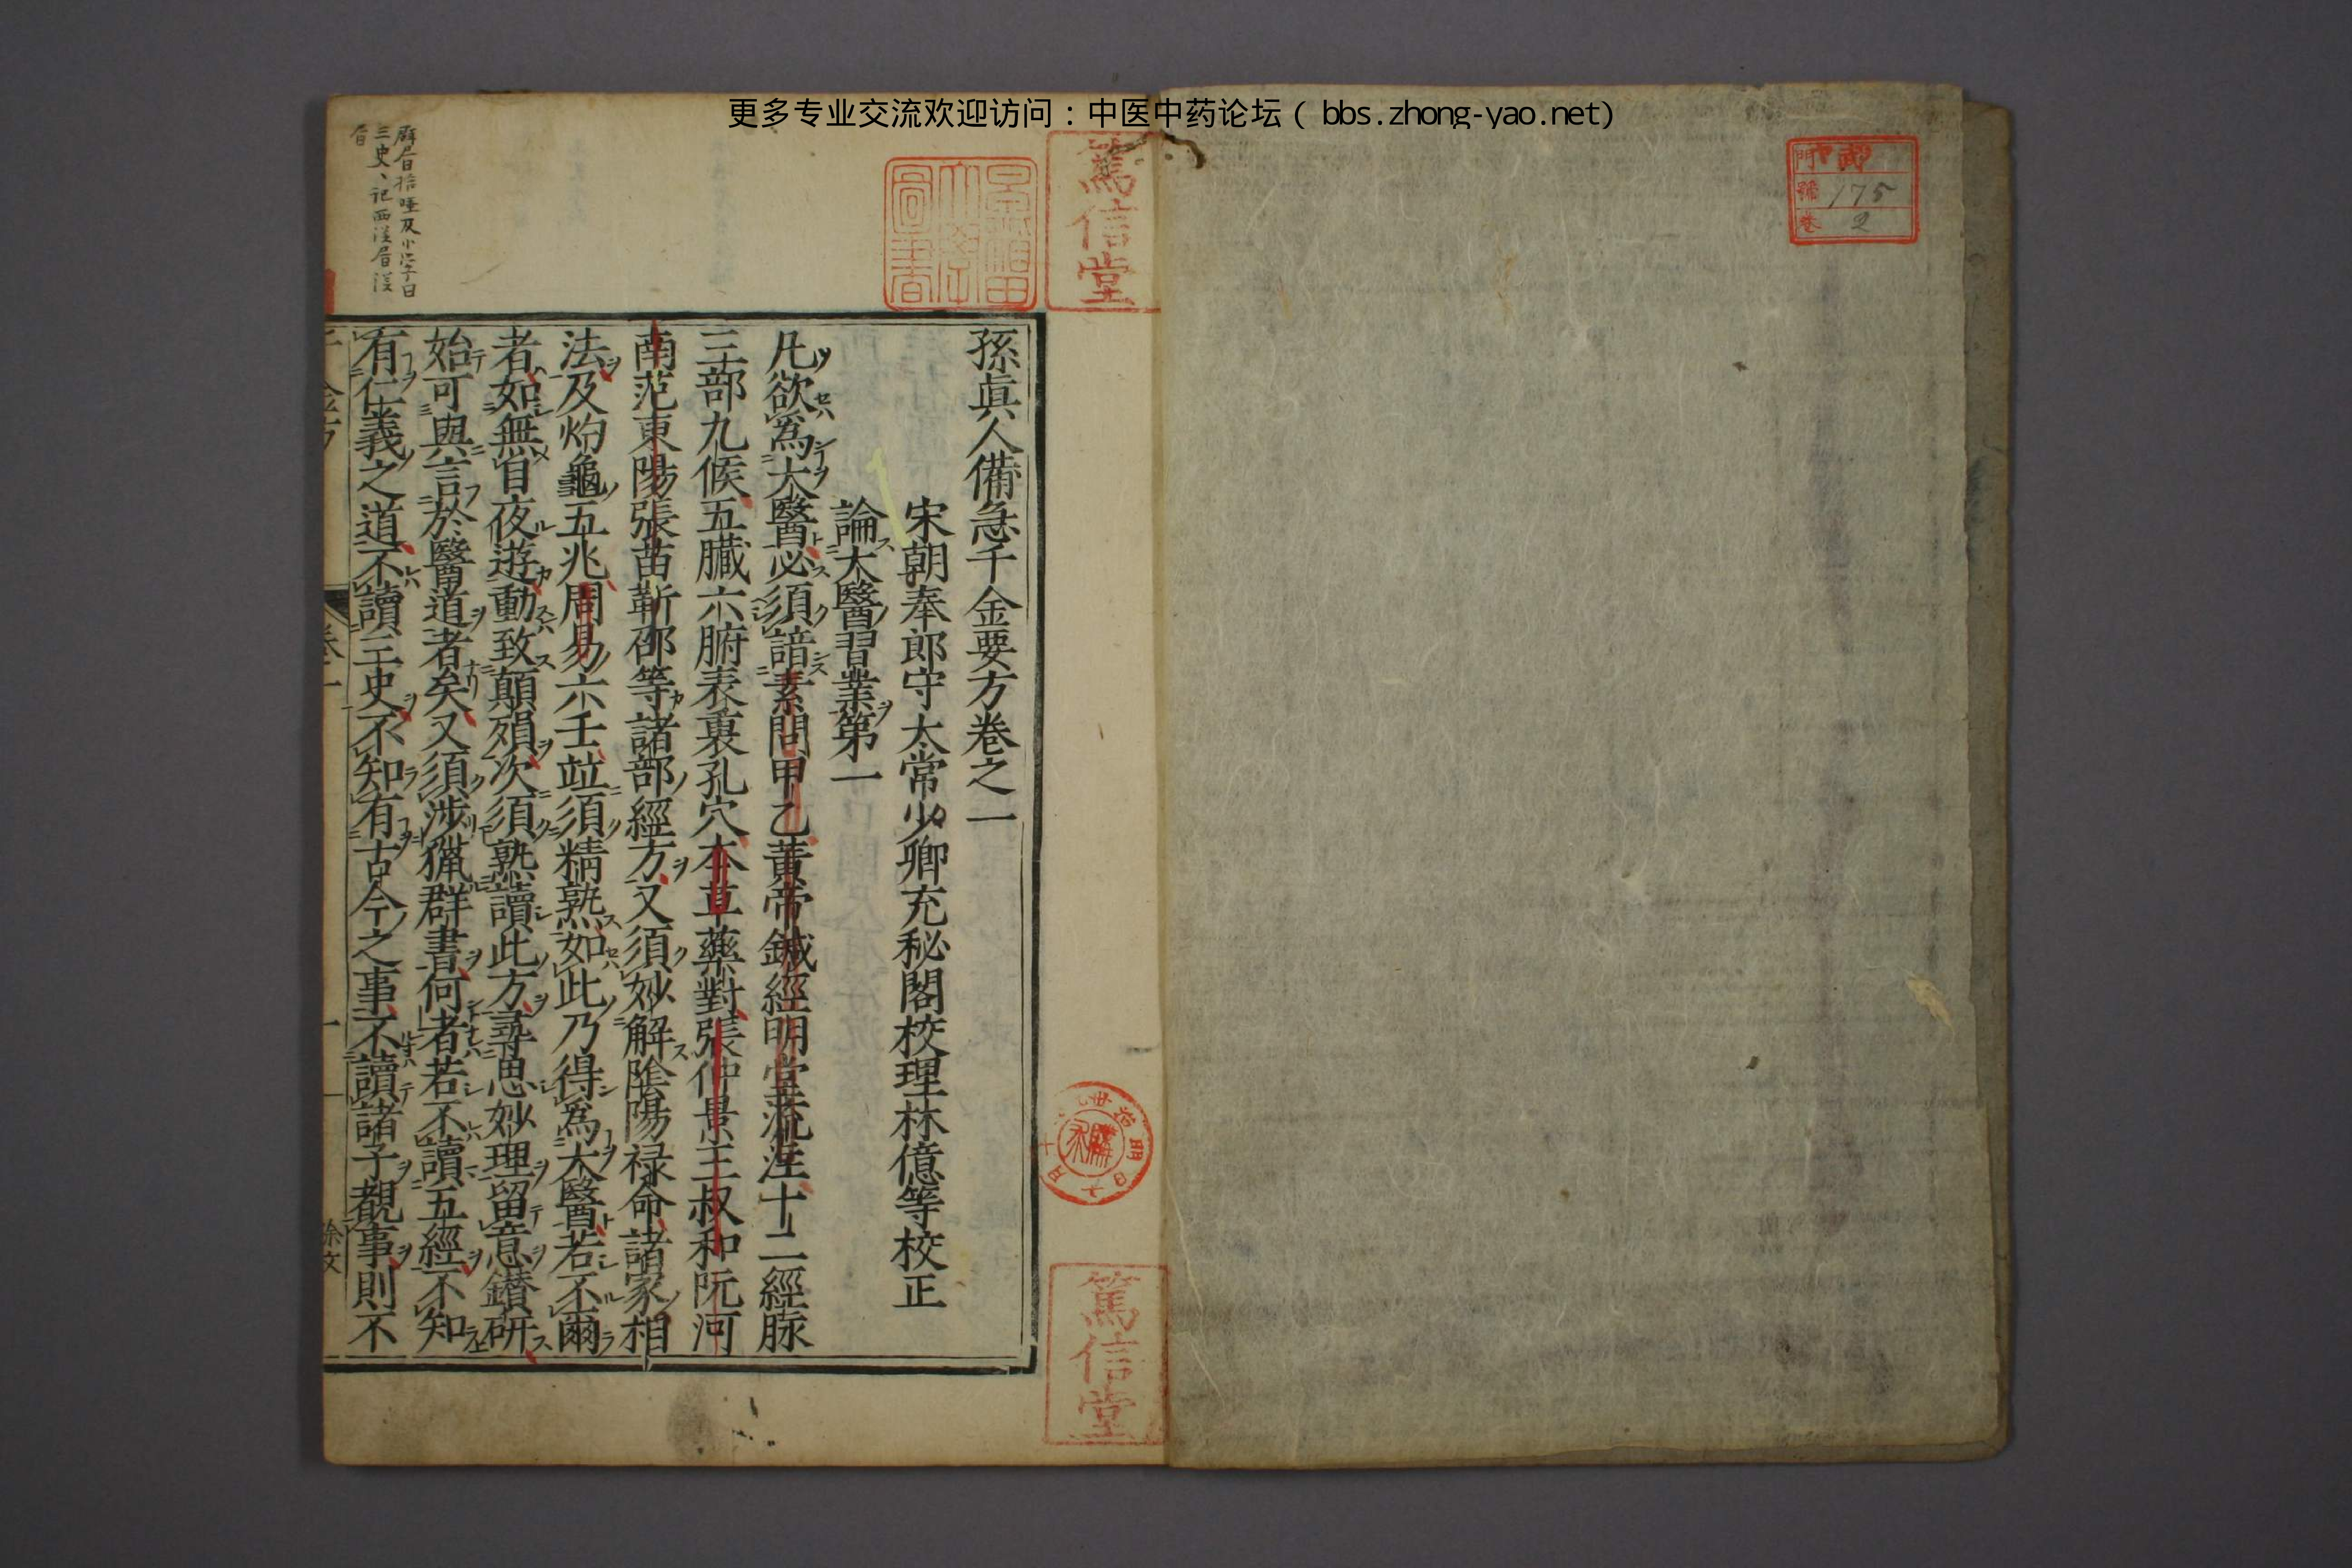 更多专业交流欢迎访问：中医中药论坛（ bbs.zhong-yao.net)
175
2
篤信堂
篤信堂
孫眞人備急千金要方卷之一
宋朝奉郎守太常少卿充秘閣校理林億等校正
論大醫習業第一
凡欲爲大醫必須諳素問甲乙黃帝鍼經明堂流注十二經脉
三部九候五臟六腑表裏孔穴本草藥對張仲景王叔和阮河
南范東陽張苗靳邵等諸部經方又須妙解陰陽禄命諸家相
法及灼龜五兆周易六壬竝須精熟如此乃得爲大醫若不爾
者如無目夜遊動致顛殞次須熟讀此方尋思妙理留意鑚研
始可與言於醫道者矣又須涉獵群書何者若不讀五經不知
有仁義之道不讀三史不知有古今之事不讀諸子覩事則不